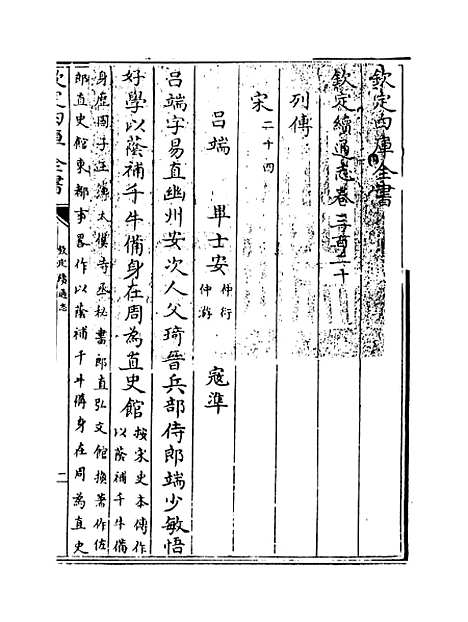 欽定四庫全書
欽定續通志卷三百二十
列傳
宋二十四
呂端 畢士安仲衍仲游 寇準
呂端字易直幽州安次人父琦晉兵部侍郎端少敏悟
好學以蔭補千牛備身在周為直史館按宋史本傳作以蔭補千牛備
身歷國子主簿太僕寺丞秘書郎直弘文館換著作佐
郎直史館東都事畧作以蔭補千牛備身在周為直史
欽定四庫全書
欽定續通志